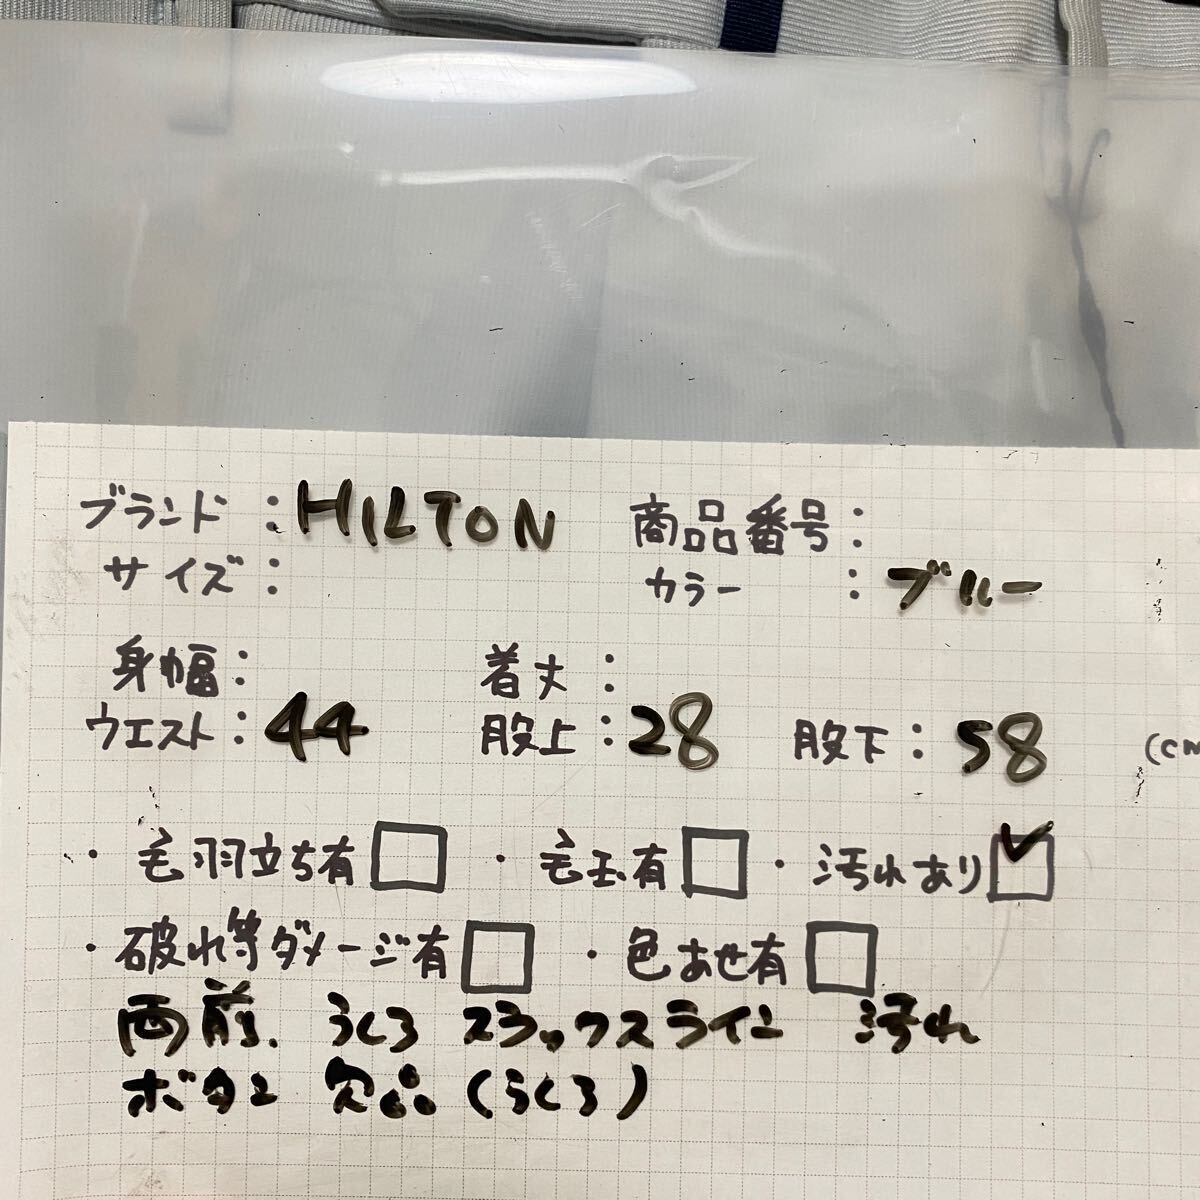 ブランド：HILTON 商品番号：
サイズ： カラー ：ブルー
身幅： 着丈：
ウエスト：44 股上：28 股下：58 (cm
・毛羽立ち有□ ・毛玉有□ ・汚れあり☑
・破れ等ダメージ有□ ・色あせ有□
両前、うしろ スラックスライン 汚れ
ボタン 欠品(うしろ)